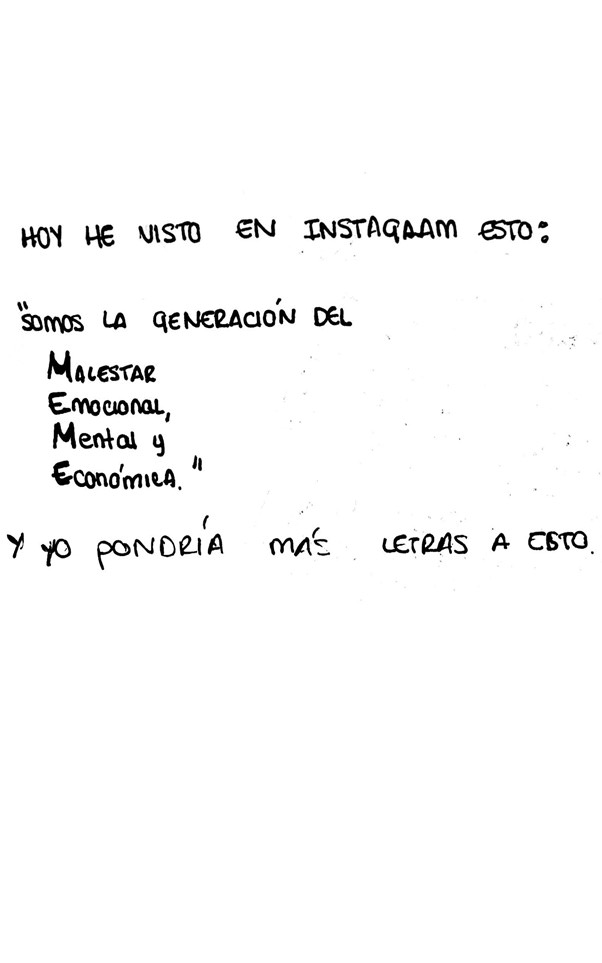 HOY HE VISTO EN INSTAGRAM ESTO:
"SOMOS LA GENERACIÓN DEL
MALESTAR
EMOCIONAL,
MENTAL Y
ECONÓMICA."
Y YO PONDRÍA MÁS LETRAS A ESTO.